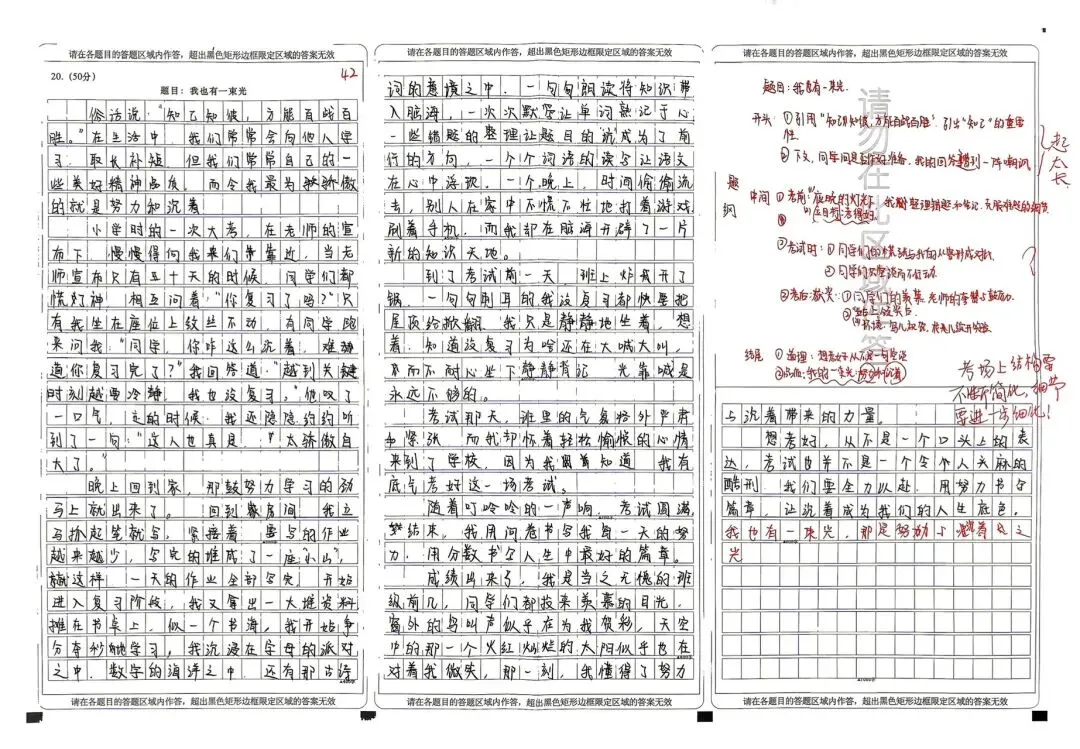 请在各题目的答题区域内作答，超出黑色矩形边框限定区域的答案无效
20. (50分)
42
题目：我也有一束光
俗话说："知己知彼，方能百战百
胜。"在生活中，我们常常会向他人学
习，取长补短，但我们常常自己的一
些美好精神品质，而令我最为骄傲
的就是努力和沉着
小学时的一次大考，在老师的宣
布下，慢慢得向我来们靠近，当老
师宣布只有五十天的时候，同学们都
慌灯神，相互问着："你复习了吗？"只
有我坐在座位上纹丝不动，有同学跑
来问我："同学，你咋这么沉着，难
道你复习完了？"我回答道："越到关键
时刻越要冷静，我也没复习。"他叹了
一口气，走的时候，我还隐隐约约听
到了一句："这人也真是，太骄傲自
大了。"
晚上回到家，那鼓努力学习的劲
马上就出来了。回到房间，我立
马抓起笔就写，紧接着，要写的作业
越来越少，写完的堆成了一座"小山"，
就这样，一天的作业全部写完，开始
进入复习阶段，我又拿出一大堆资料
摊在书桌上，似一个书海，我开始争
分夺秒地学习，我沉浸在字母的派对
之中，数字的海洋之中，还有那古诗
请在各题目的答题区域内作答，超出黑色矩形边框限定区域的答案无效
请在各题目的答题区域内作答，超出黑色矩形边框限定区域的答案无效
词的意境之中，一句句朗读将知识带
入脑海，一次次默签让单词熟记于心
一些错题的整理让题目的 成为了前
行的方向，一个个词语的读写让语文
在心中浮现，一个晚上，时间偷偷流
去，别人在家中不慌不忙地打着游戏
刷着手机，而我却在脑海开辟了一片
新的知识天地。
到了考试前一天，班上炸开了
锅，一句句刺耳的我没复习都快要把
屋顶给掀翻，我只是静静地坐着，想
着：知道没复习为啥还在大喊大叫，
而不耐心坐下静静背记，光靠喊是
永远不够的。
考试那天，班里的气复格外严肃
和紧张，而我却怀着轻松愉悦的心情
来到了学校，因为我知道，我有
底气考好这一场考试。
随着叮呤呤的一声响，考试圆满
结束，我用问卷书写我每一天的努
力，用分数书写人生中最好的篇章。
成绩出来了，我是当之无愧的班
级前几，同学们都投来羡慕的目光，
窗外的鸟叫声似乎在为我贺彩，天空
中的那一个火红灿烂的太阳似乎也在
对着我微笑，那一刻，我懂得了努力
请在各题目的答题区域内作答，超出黑色矩形边框限定区域的答案无效
请在各题目的答题区域内作答，超出黑色矩形边框限定区域的答案无效
请勿在此区域答
题目：我也有一束光
题纲
开头：①引用"知己知彼，方能百战百胜"引出"知己"的重要
性
②下文，同学间是否作好准备，我的回答遭到一阵嘲讽
起太长
中间 ①考前：
②考试时：①同学们的 与我的从容形成对比
②同学们
③考后：①同学们的羡慕，老师的夸赞与鼓励
结尾 ①道理：想考好从不是一句空谈
②点题：我的一束光：努力和沉着
考场上结构要
简化，细节
要进一步细化！
与沉着带来的力量。
想考好，从不是一个口头上的表
达，考试也并不是一个令个人头麻的
酷刑，我们要全力以赴，用努力书写
篇章，让沉着成为我们的人生底色。
我也有一束光，那是努力与沉着之
光
请在各题目的答题区域内作答，超出黑色矩形边框限定区域的答案无效